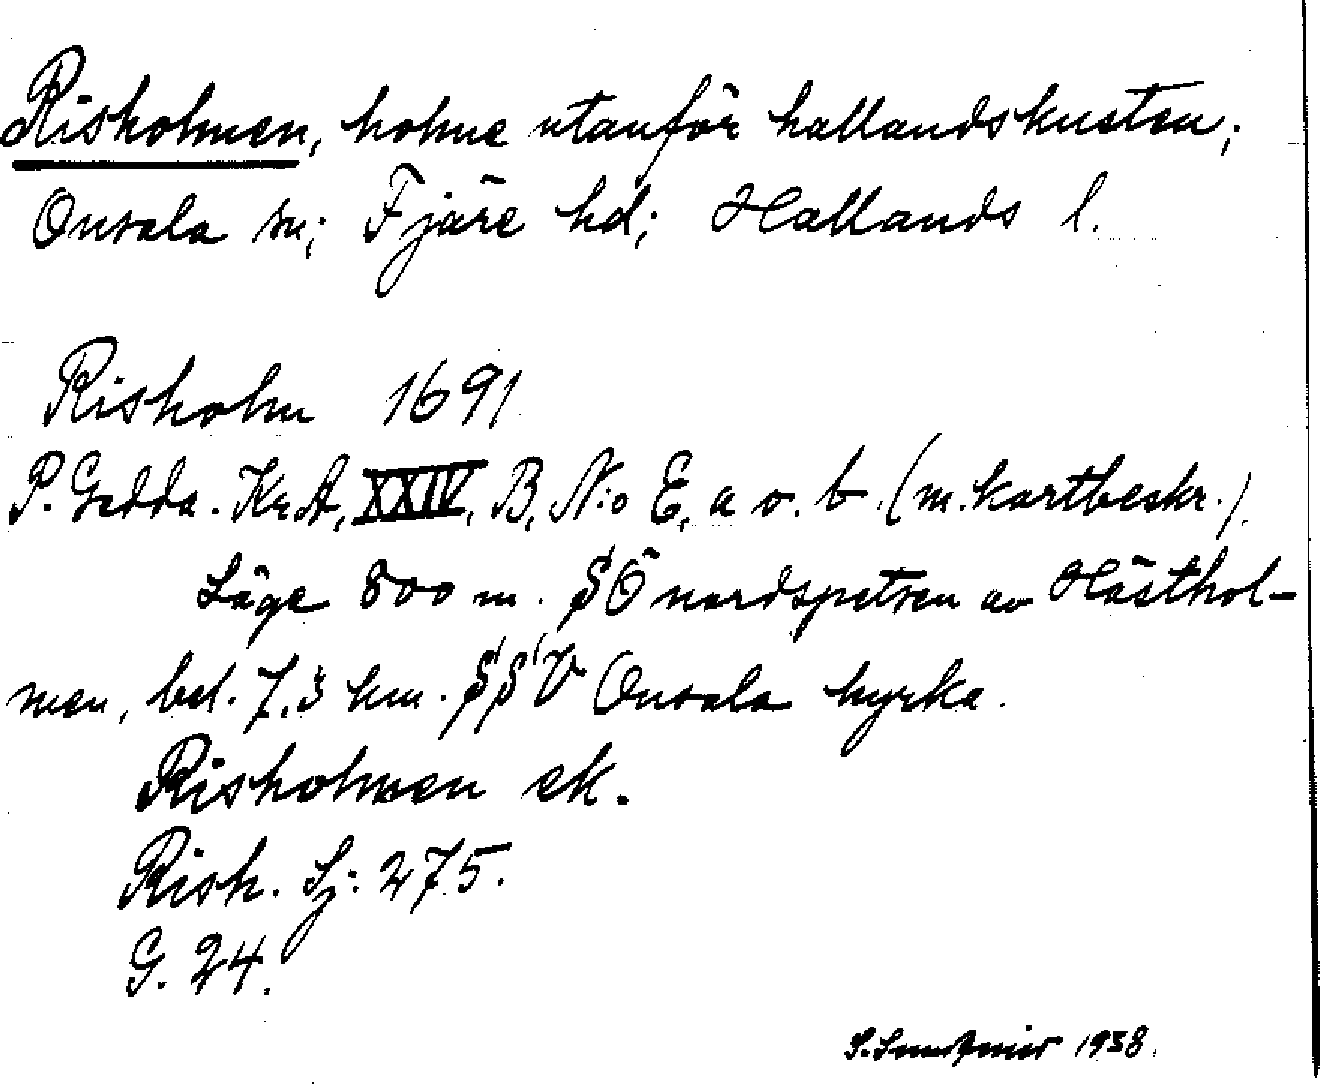 Risholmen, holme utanför hallandskusten;
Onsala sn; Fjäre hd; Hallands l.
Risholm 1691
P. Gedda. Kr.A, XXIV, B, N:o E, a o. b (m. kartbeskr.).
Läge 800 m. SÖ nordspetsen av Hästhol-
men, bel. 7,3 km. SSV Onsala kyrka.
Risholmen ek.
Rish. Sj: 275.
G. 24.
S. 1938.